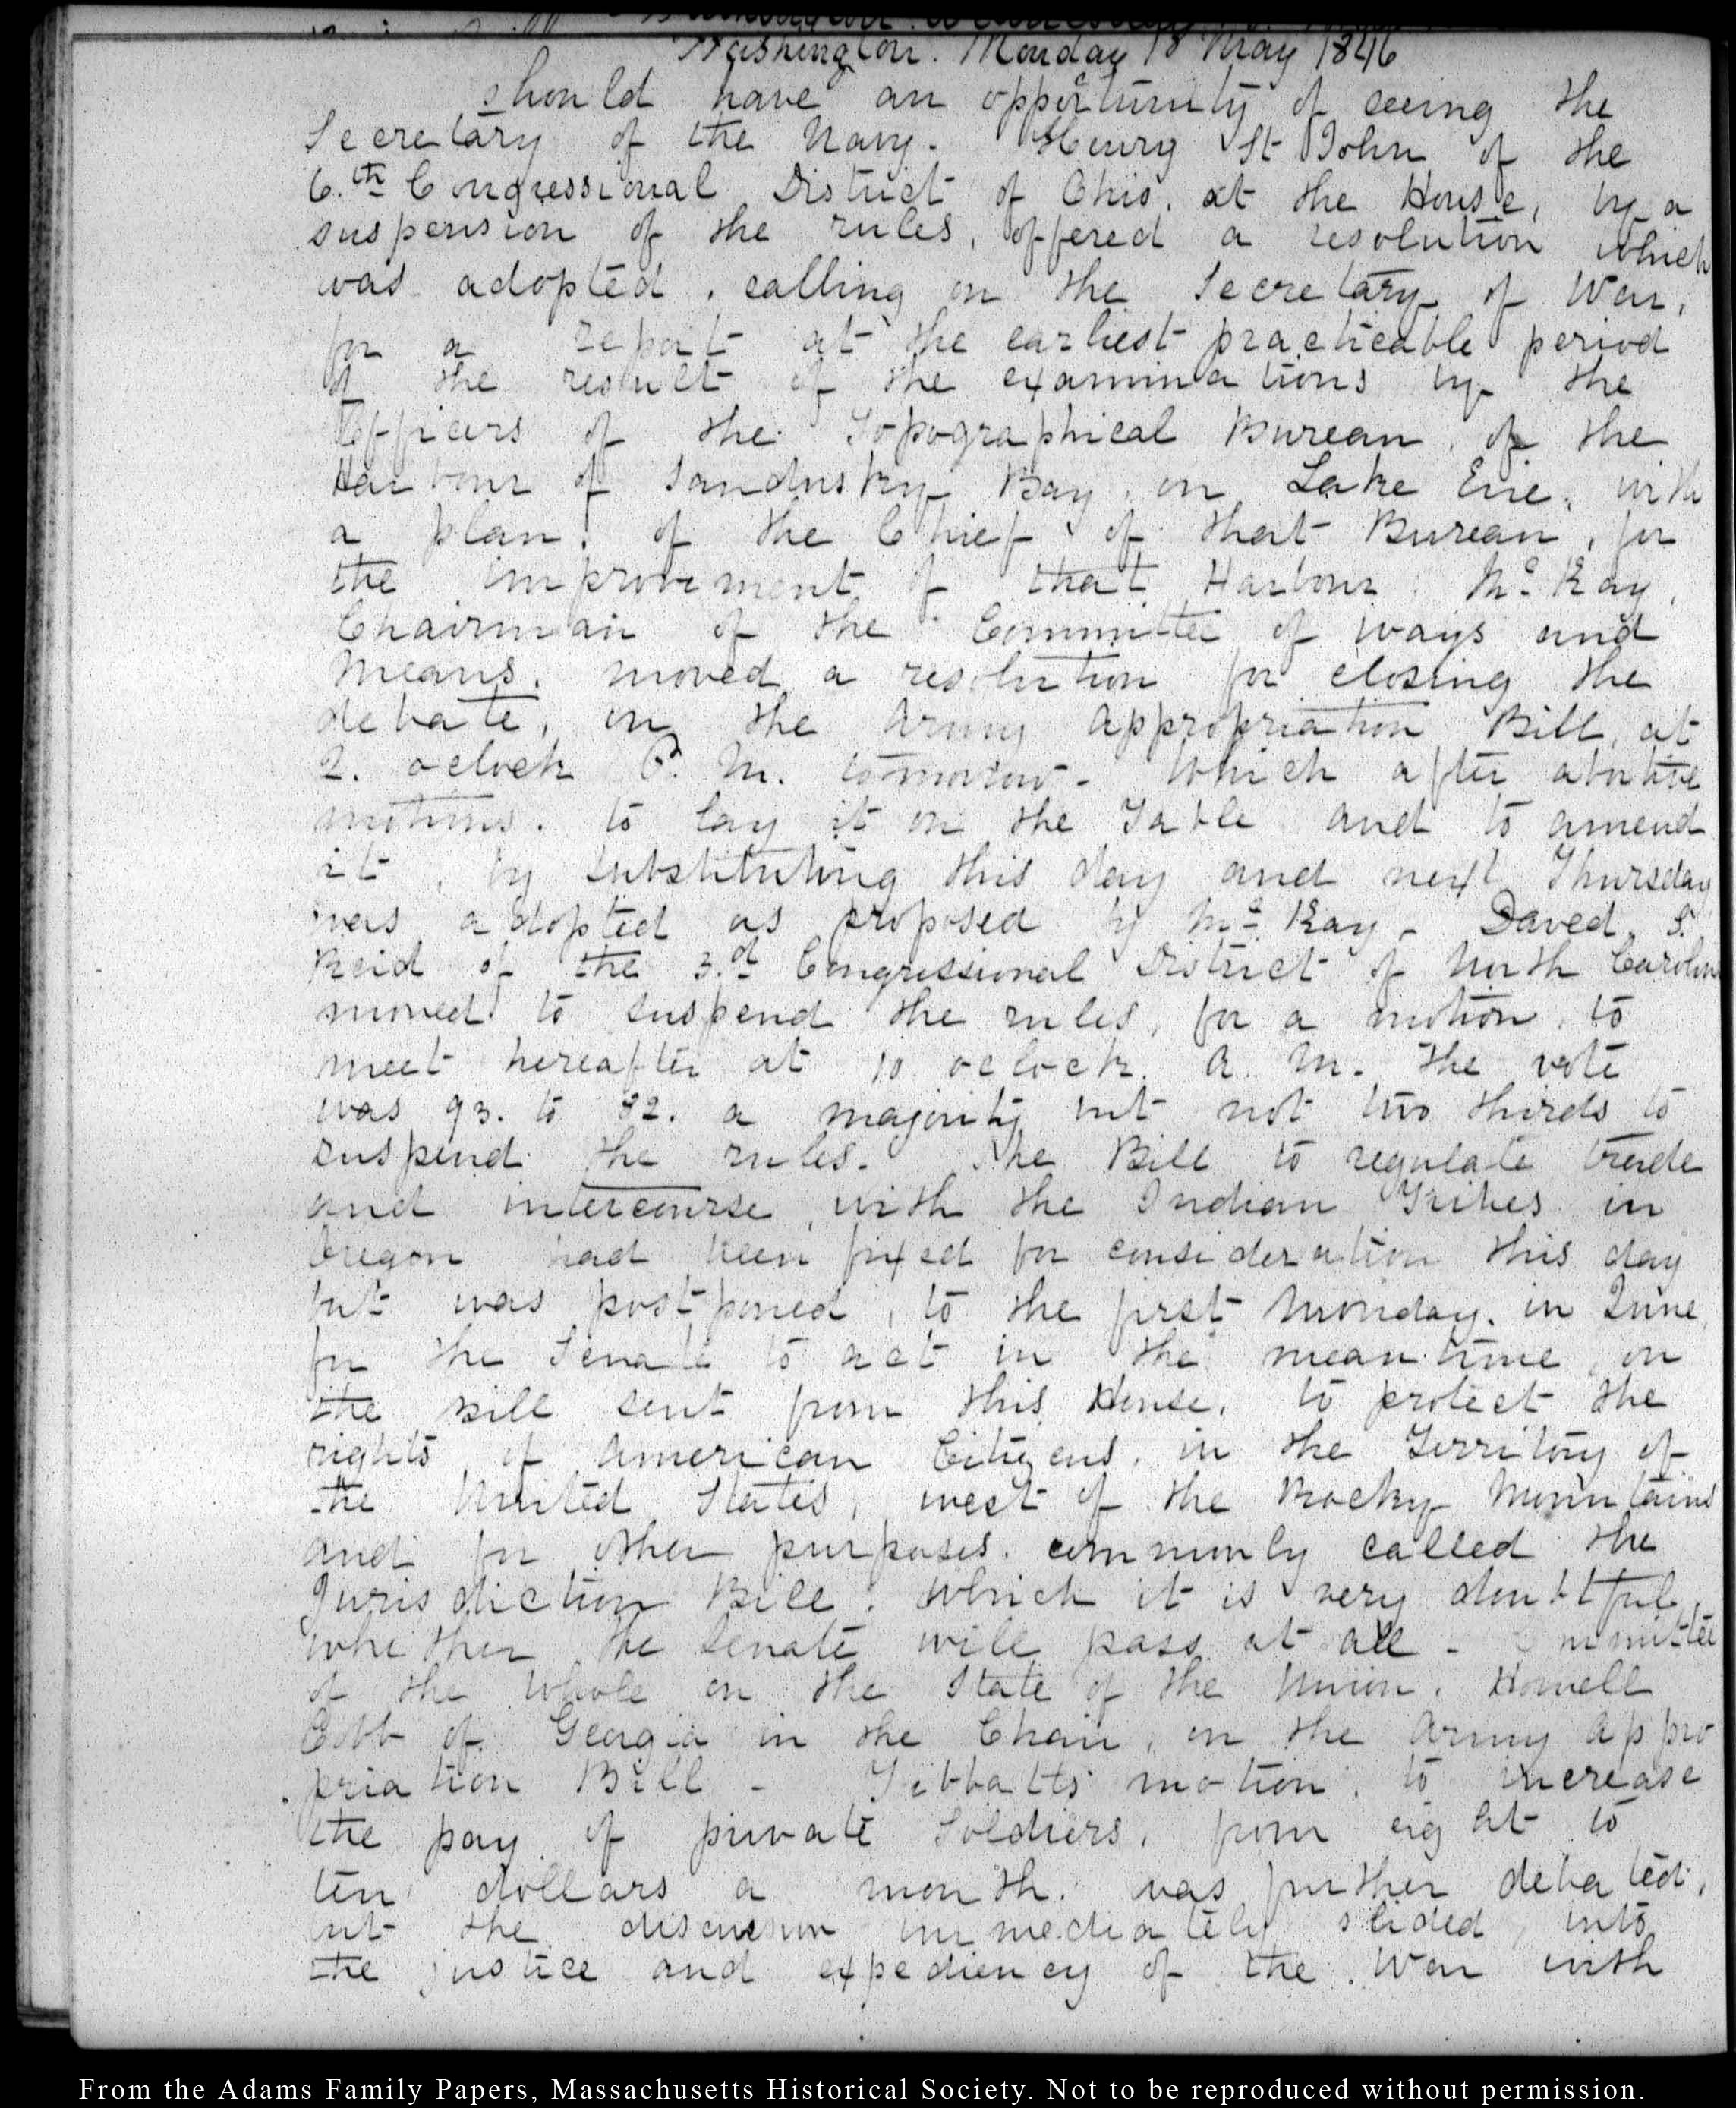 Washington. Monday 18 May 1846
should have an opportunity of seeing the
Secretary of the Navy. Henry St John of the
6.th Congressional District of Ohio. at the House, by a
suspension of the rules, offered a resolution which
was adopted, calling on the Secretary of War,
for a report at the earliest practicable period
of the result of the examinations by the
Officers of the Topographical Bureau, of the
Harbour of Sandusky Bay, on Lake Erie, with
a plan, of the Chief of that Bureau, for
the improvement of that Harbour. Mc. Kay,
Chairman of the Committee of ways and
means, moved a resolution for closing the
debate, on the Army appropriation Bill, at
2. oclock P. M. tomorrow - which after abortive
motions, to lay it on the Table and to amend
it, by substituting this day and next Thursday
was adopted as proposed by Mc. Kay - Daved. S.
Reid of the 3.d Congressional District of North Carolina
moved to suspend the rules, for a motion, to
meet hereafter at 10 oclock. A. M. The vote
was 93. to 82. a majority but not two thirds to
suspend the rules. The Bill to regulate trade
and intercourse with the Indian Tribes in
Oregon had been fixed for consideration this day
but was postponed, to the first Monday. in June,
for the Senate to act in the mean time on
the bill sent from this House, to protect the
rights of American Citizens, in the Territory of
the United States, west of the Rocky Mountains
and for other purposes. commonly called the
Jurisdiction Bill. which it is very doubtful,
whether the Senate will pass at all - Committee
of the whole on the State of the Union. Howell
Cobb of Georgia in the Chair, on the Army appro
priation Bill - Tibbatts' motion, to increase
the pay of private Soldiers, from eight to
ten dollars a month. was further debated,
but the discussion immediately slided into
the justice and expediency of the War with
From the Adams Family Papers, Massachusetts Historical Society. Not to be reproduced without permission.